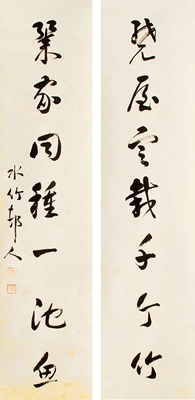 繞屋定栽千个竹
家同種一池魚
水竹邨人